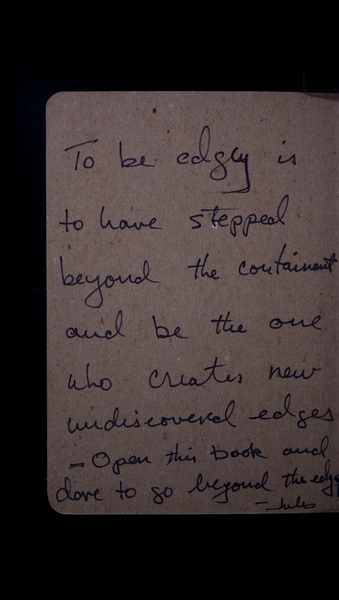 To be edgy is
to have stepped
beyond the containent
and be the one
who creates new
undiscovered edges
- Open this book and
dare to go beyond the edge
- Jules